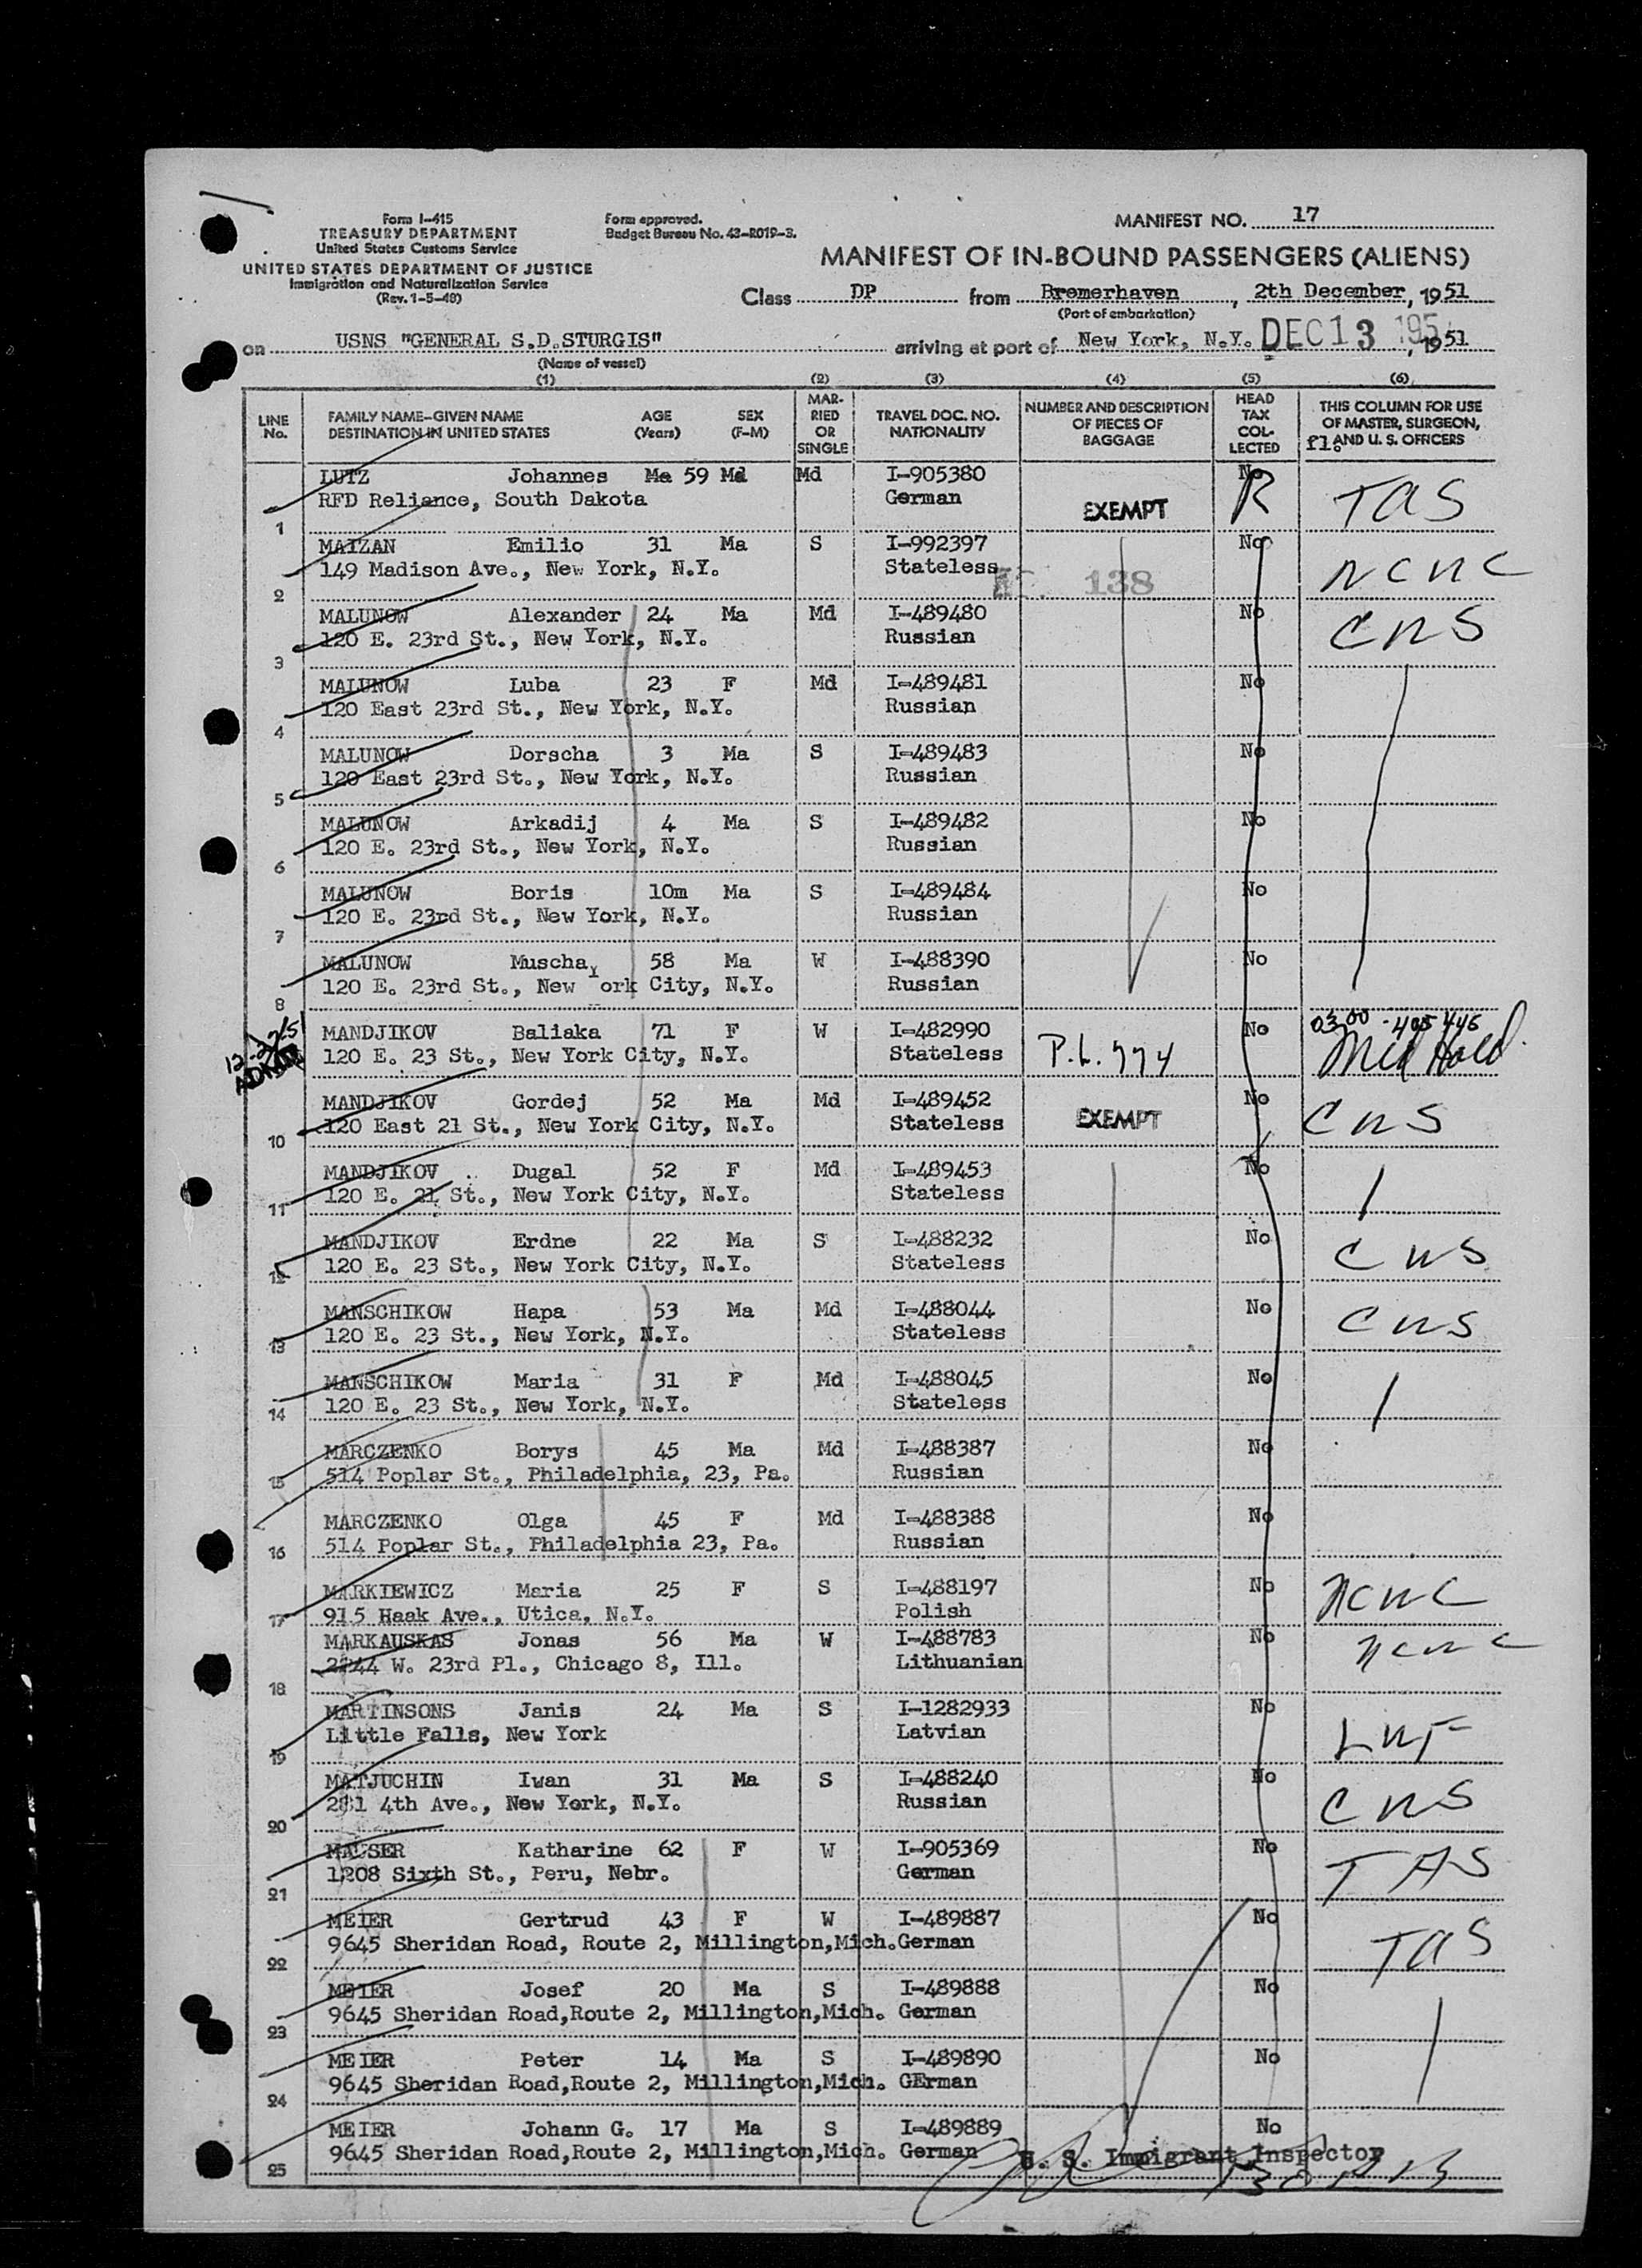 Form I-415
TREASURY DEPARTMENT
United States Customs Service
UNITED STATES DEPARTMENT OF JUSTICE
Immigration and Naturalization Service
(Rev. 1-5-48)
Form approved.
Budget Bureau No. 43-R019-3.
MANIFEST NO. 17
MANIFEST OF IN-BOUND PASSENGERS (ALIENS)
Class DP from Bremerhaven, 2th December, 1951
(Port of embarkation)
on USNS "GENERAL S.D.STURGIS" arriving at port of New York, N.Y. DEC 13 195 , 1951
(Name of vessel)
(1) (2) (3) (4) (5) (6)
LINE No. FAMILY NAME—GIVEN NAME DESTINATION IN UNITED STATES AGE (Years) SEX (F-M) MARRIED OR SINGLE TRAVEL DOC. NO. NATIONALITY NUMBER AND DESCRIPTION OF PIECES OF BAGGAGE HEAD TAX COLLECTED THIS COLUMN FOR USE OF MASTER, SURGEON, AND U. S. OFFICERS
LUTZ Johannes Ma 59 Md Md I-905380 No
RFD Reliance, South Dakota German EXEMPT R TAS
1
MAIZAN Emilio 31 Ma S I-992397 No
149 Madison Ave., New York, N.Y. Stateless 138 NCNC
2
MALUNOW Alexander 24 Ma Md I-489480 No
120 E. 23rd St., New York, N.Y. Russian CNS
3
MALUNOW Luba 23 F Md I-489481 No
120 East 23rd St., New York, N.Y. Russian
4
MALUNOW Dorscha 3 Ma S I-489483 No
120 East 23rd St., New York, N.Y. Russian
5
MALUNOW Arkadij 4 Ma S I-489482 No
120 E. 23rd St., New York, N.Y. Russian
6
MALUNOW Boris 10m Ma S I-489484 No
120 E. 23rd St., New York, N.Y. Russian
7
MALUNOW Muscha 58 Ma W I-488390 No
120 E. 23rd St., New York City, N.Y. Russian
8
MANDJIKOV Baliaka 71 F W I-482990 No 0300-405446
120 E. 23 St., New York City, N.Y. Stateless P.L. 774 Med Hold
MANDJIKOV Gordej 52 Ma Md I-489452 No
120 East 21 St., New York City, N.Y. Stateless EXEMPT CNS
10
MANDJIKOV Dugal 52 F Md I-489453 No
120 E. 21 St., New York City, N.Y. Stateless
11
MANDJIKOV Erdne 22 Ma S I-488232 No
120 E. 23 St., New York City, N.Y. Stateless CNS
12
MANSCHIKOW Hapa 53 Ma Md I-488044 No
120 E. 23 St., New York, N.Y. Stateless CNS
13
MANSCHIKOW Maria 31 F Md I-488045 No
120 E. 23 St., New York, N.Y. Stateless
14
MARCZENKO Borys 45 Ma Md I-488387 No
514 Poplar St., Philadelphia, 23, Pa. Russian
15
MARCZENKO Olga 45 F Md I-488388 No
514 Poplar St., Philadelphia 23, Pa. Russian
16
MARKIEWICZ Maria 25 F S I-488197 No NCNC
915 Haak Ave., Utica, N.Y. Polish
17
MARKAUSKAS Jonas 56 Ma W I-488783 No NCNC
2244 W. 23rd Pl., Chicago 8, Ill. Lithuanian
18
MARTINSONS Janis 24 Ma S I-1282933 No
Little Falls, New York Latvian LWF
19
MATJUCHIN Iwan 31 Ma S I-488240 No
281 4th Ave., New York, N.Y. Russian CNS
20
MAUSER Katharine 62 F W I-905369 No
1208 Sixth St., Peru, Nebr. German TAS
21
MEIER Gertrud 43 F W I-489887 No
9645 Sheridan Road, Route 2, Millington,Mich. German TAS
22
MEIER Josef 20 Ma S I-489888 No
9645 Sheridan Road,Route 2, Millington,Mich. German
23
MEIER Peter 14 Ma S I-489890 No
9645 Sheridan Road,Route 2, Millington,Mich. GErman
24
MEIER Johann G. 17 Ma S I-489889 No
9645 Sheridan Road,Route 2, Millington,Mich. German U. S. Immigrant Inspector
25